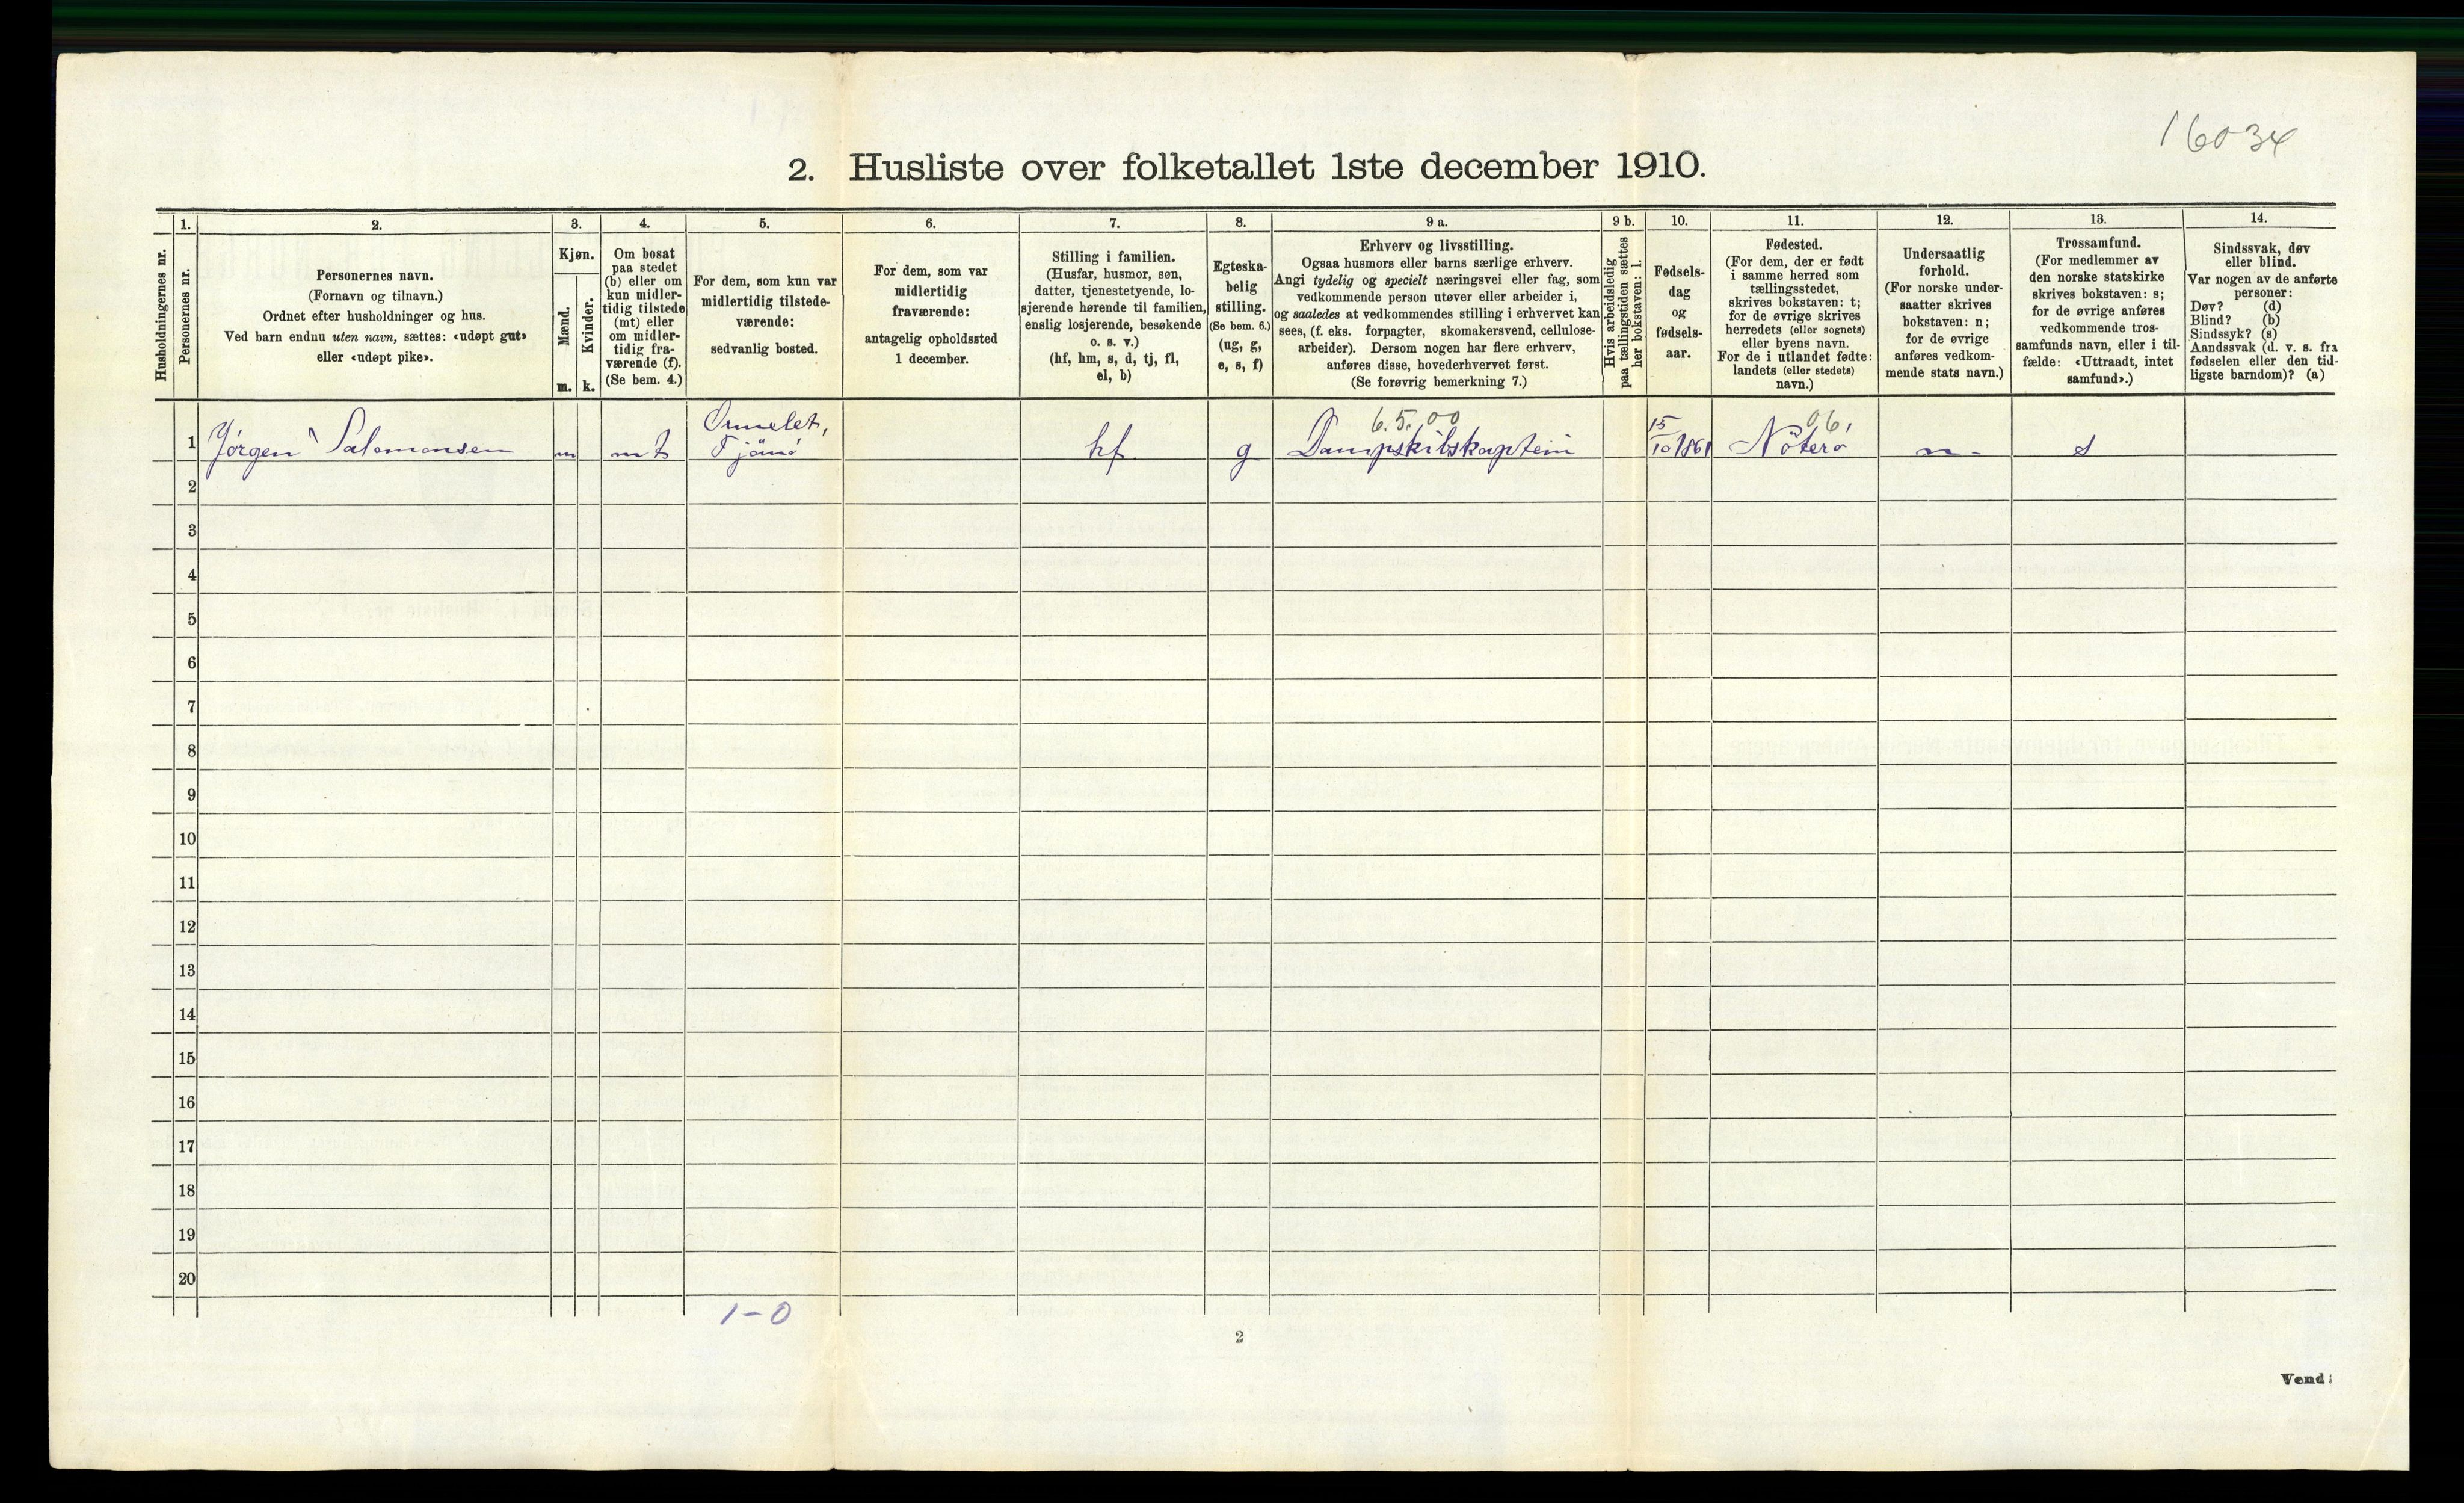 16034
2. Husliste over folketallet 1ste december 1910.
Husholdningernes nr.
1.
Personernes nr.
2.
Personernes navn.
(Fornavn og tilnavn.)
Ordnet efter husholdninger og hus.
Ved barn endnu uten navn, sættes: «udøpt gut»
eller «udøpt pike».
3.
Kjøn.
Mænd.
m.
Kvinder.
k.
4.
Om bosat
paa stedet
(b) eller om
kun midler-
tidig tilstede
(mt) eller
om midler-
tidig fra-
værende (f).
(Se bem. 4.)
5.
For dem, som kun var
midlertidig tilstede-
værende:
sedvanlig bosted.
6.
For dem, som var
midlertidig
fraværende:
antagelig opholdssted
1 december.
7.
Stilling i familien.
(Husfar, husmor, søn,
datter, tjenestetyende, lo-
sjerende hørende til familien,
enslig losjerende, besøkende
o. s. v.)
(hf, hm, s, d, tj, fl,
el, b)
8.
Egteska-
belig
stilling.
(Se bem. 6.)
(ug, g,
e, s, f)
9 a.
Erhverv og livsstilling.
Ogsaa husmors eller barns særlige erhverv.
Angi tydelig og specielt næringsvei eller fag, som
vedkommende person utøver eller arbeider i,
og saaledes at vedkommendes stilling i erhvervet kan
sees, (f. eks. forpagter, skomakersvend, cellulose-
arbeider). Dersom nogen har flere erhverv,
anføres disse, hovederhvervet først.
(Se forøvrig bemerkning 7.)
9 b.
Hvis arbeidsledig
paa tællingstiden sættes
her bokstaven: l.
10.
Fødsels-
dag
og
fødsels-
aar.
11.
Fødested.
(For dem, der er født
i samme herred som
tællingsstedet,
skrives bokstaven: t;
for de øvrige skrives
herredets (eller sognets)
eller byens navn.
For de i utlandet fødte:
landets (eller stedets)
navn.)
12.
Undersaatlig
forhold.
(For norske under-
saatter skrives
bokstaven: n;
for de øvrige
anføres vedkom-
mende stats navn.)
13.
Trossamfund.
(For medlemmer av
den norske statskirke
skrives bokstaven: s;
for de øvrige anføres
vedkommende tros-
samfunds navn, eller i til-
fælde: «Uttraadt, intet
samfund».)
14.
Sindssvak, døv
eller blind.
Var nogen av de anførte
personer:
Døv? (d)
Blind? (b)
Sindssyk? (s)
Aandssvak (d. v. s. fra
fødselen eller den tid-
ligste barndom)? (a)
1 Jørgen Salomonsen m mt Ormelet, Tjömö hf. g 6.5.00 Dampskibskaptein 15/10 1861 06, Nöterö n- s
2
3
4
5
6
7
8
9
10
11
12
13
14
15
16
17
18
19
20
1-0
2
Vend!